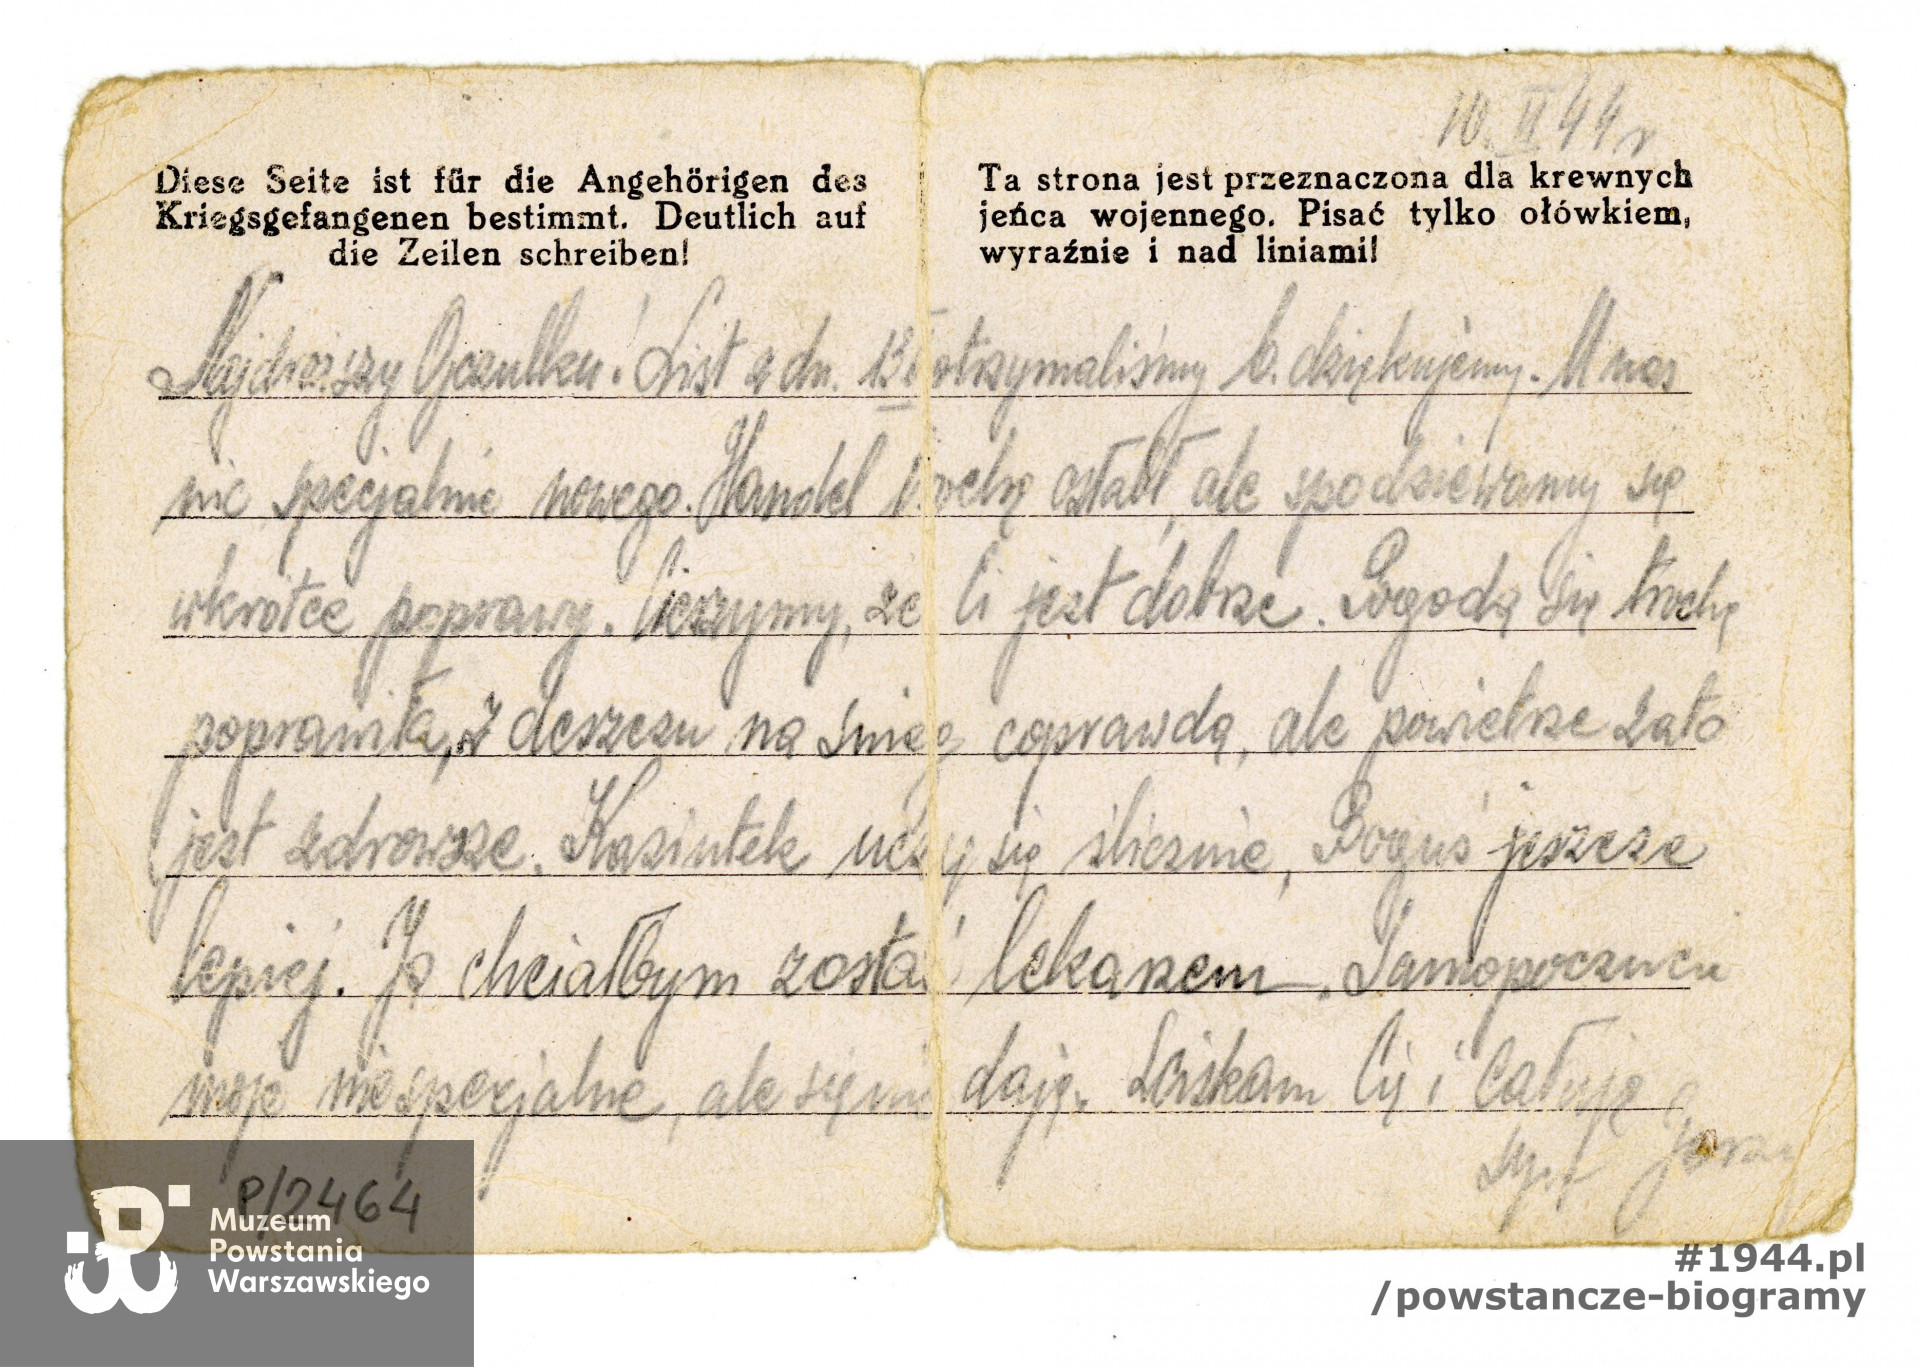 10. II 44 r
Diese Seite ist für die Angehörigen des
Kriegsgefangenen bestimmt. Deutlich auf
die Zeilen schreiben!
Ta strona jest przeznaczona dla krewnych
jeńca wojennego. Pisać tylko ołówkiem,
wyraźnie i nad liniami!
Najdroższy Ojczulku! List z dn. 13 I otrzymaliśmy b. dziękujemy. U nas
nic specjalnie nowego. Handel trochę osłabł, ale spodziewamy się
wkrótce poprawy. Cieszymy, że Ci jest dobrze. Pogoda się trochę
poprawiła, z deszczu na śnieg coprawda, ale powietrze zato
jest zdrowsze. Kazintek uczy się ślicznie, Boguś jeszcze
lepiej. Ja chciałbym zostać lekarzem. Samopoczucie
moje niespecjalne, ale się nie daję. Ściskam Cię i całuję
syn
P/2464
Muzeum
Powstania
Warszawskiego
#1944.pl
/powstancze-biogramy